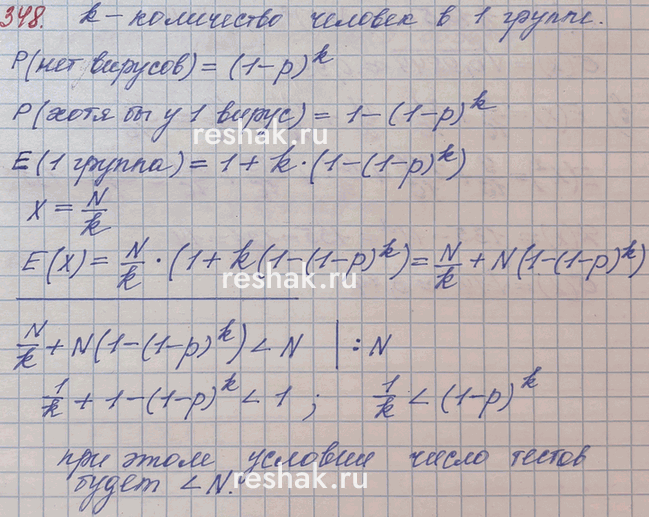 348. k – количество человек в 1 группе.
P(нет вирусов) = (1-p)^k
P(хотя бы у 1 вирус) = 1-(1-p)^k
reshak.ru
E(1 группа) = 1 + k·(1-(1-p)^k)
x = N/k
E(x) = N/k · (1+k(1-(1-p)^k) = N/k + N(1-(1-p)^k)
reshak.ru
N/k + N(1-(1-p)^k) < N | : N
1/k + 1-(1-p)^k < 1 ; 1/k < (1-p)^k
reshak.ru
при этом условии число тестов
будет < N.
reshak.ru